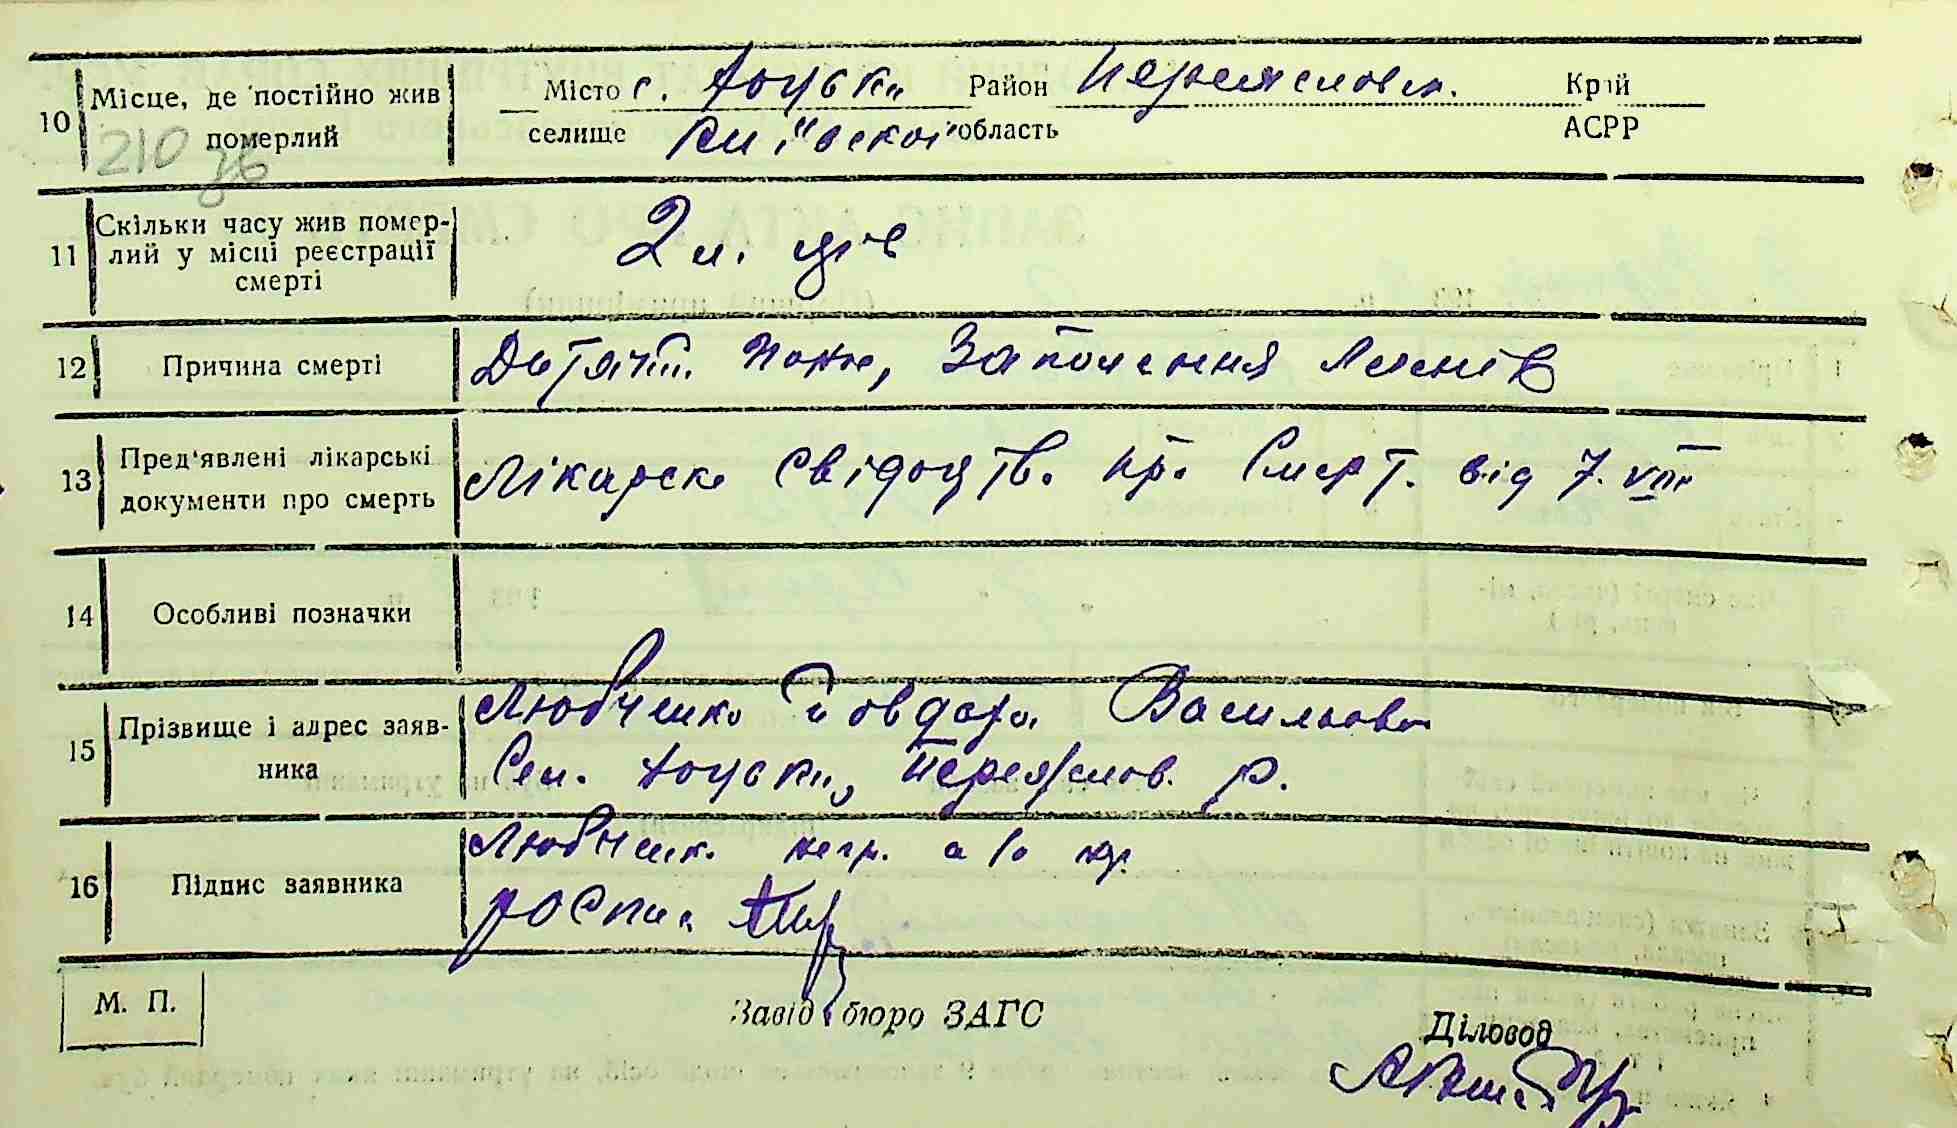 10 Місце, де постійно жив померлий Місто с. Хоцьки Район Переяславск. Край
210 селище Київської область АСРР
11 Скільки часу жив помер-
лий у місці реєстрації
смерті
2 м.
12 Причина смерті Дитячий понос, Запалення Легенів
13 Пред'явлені лікарські
документи про смерть
Лікарске свідоцтв. пр. Смерт. від 7. VIII
14 Особливі позначки
15 Прізвище і адрес заяв-
ника
Любченко Товдора Васильовн
Сел. Хоцьки, Переяслов. р.
16 Підпис заявника
Любченк. негр. а за
роспис
М. П.
Завід бюро ЗАГС
Діловод